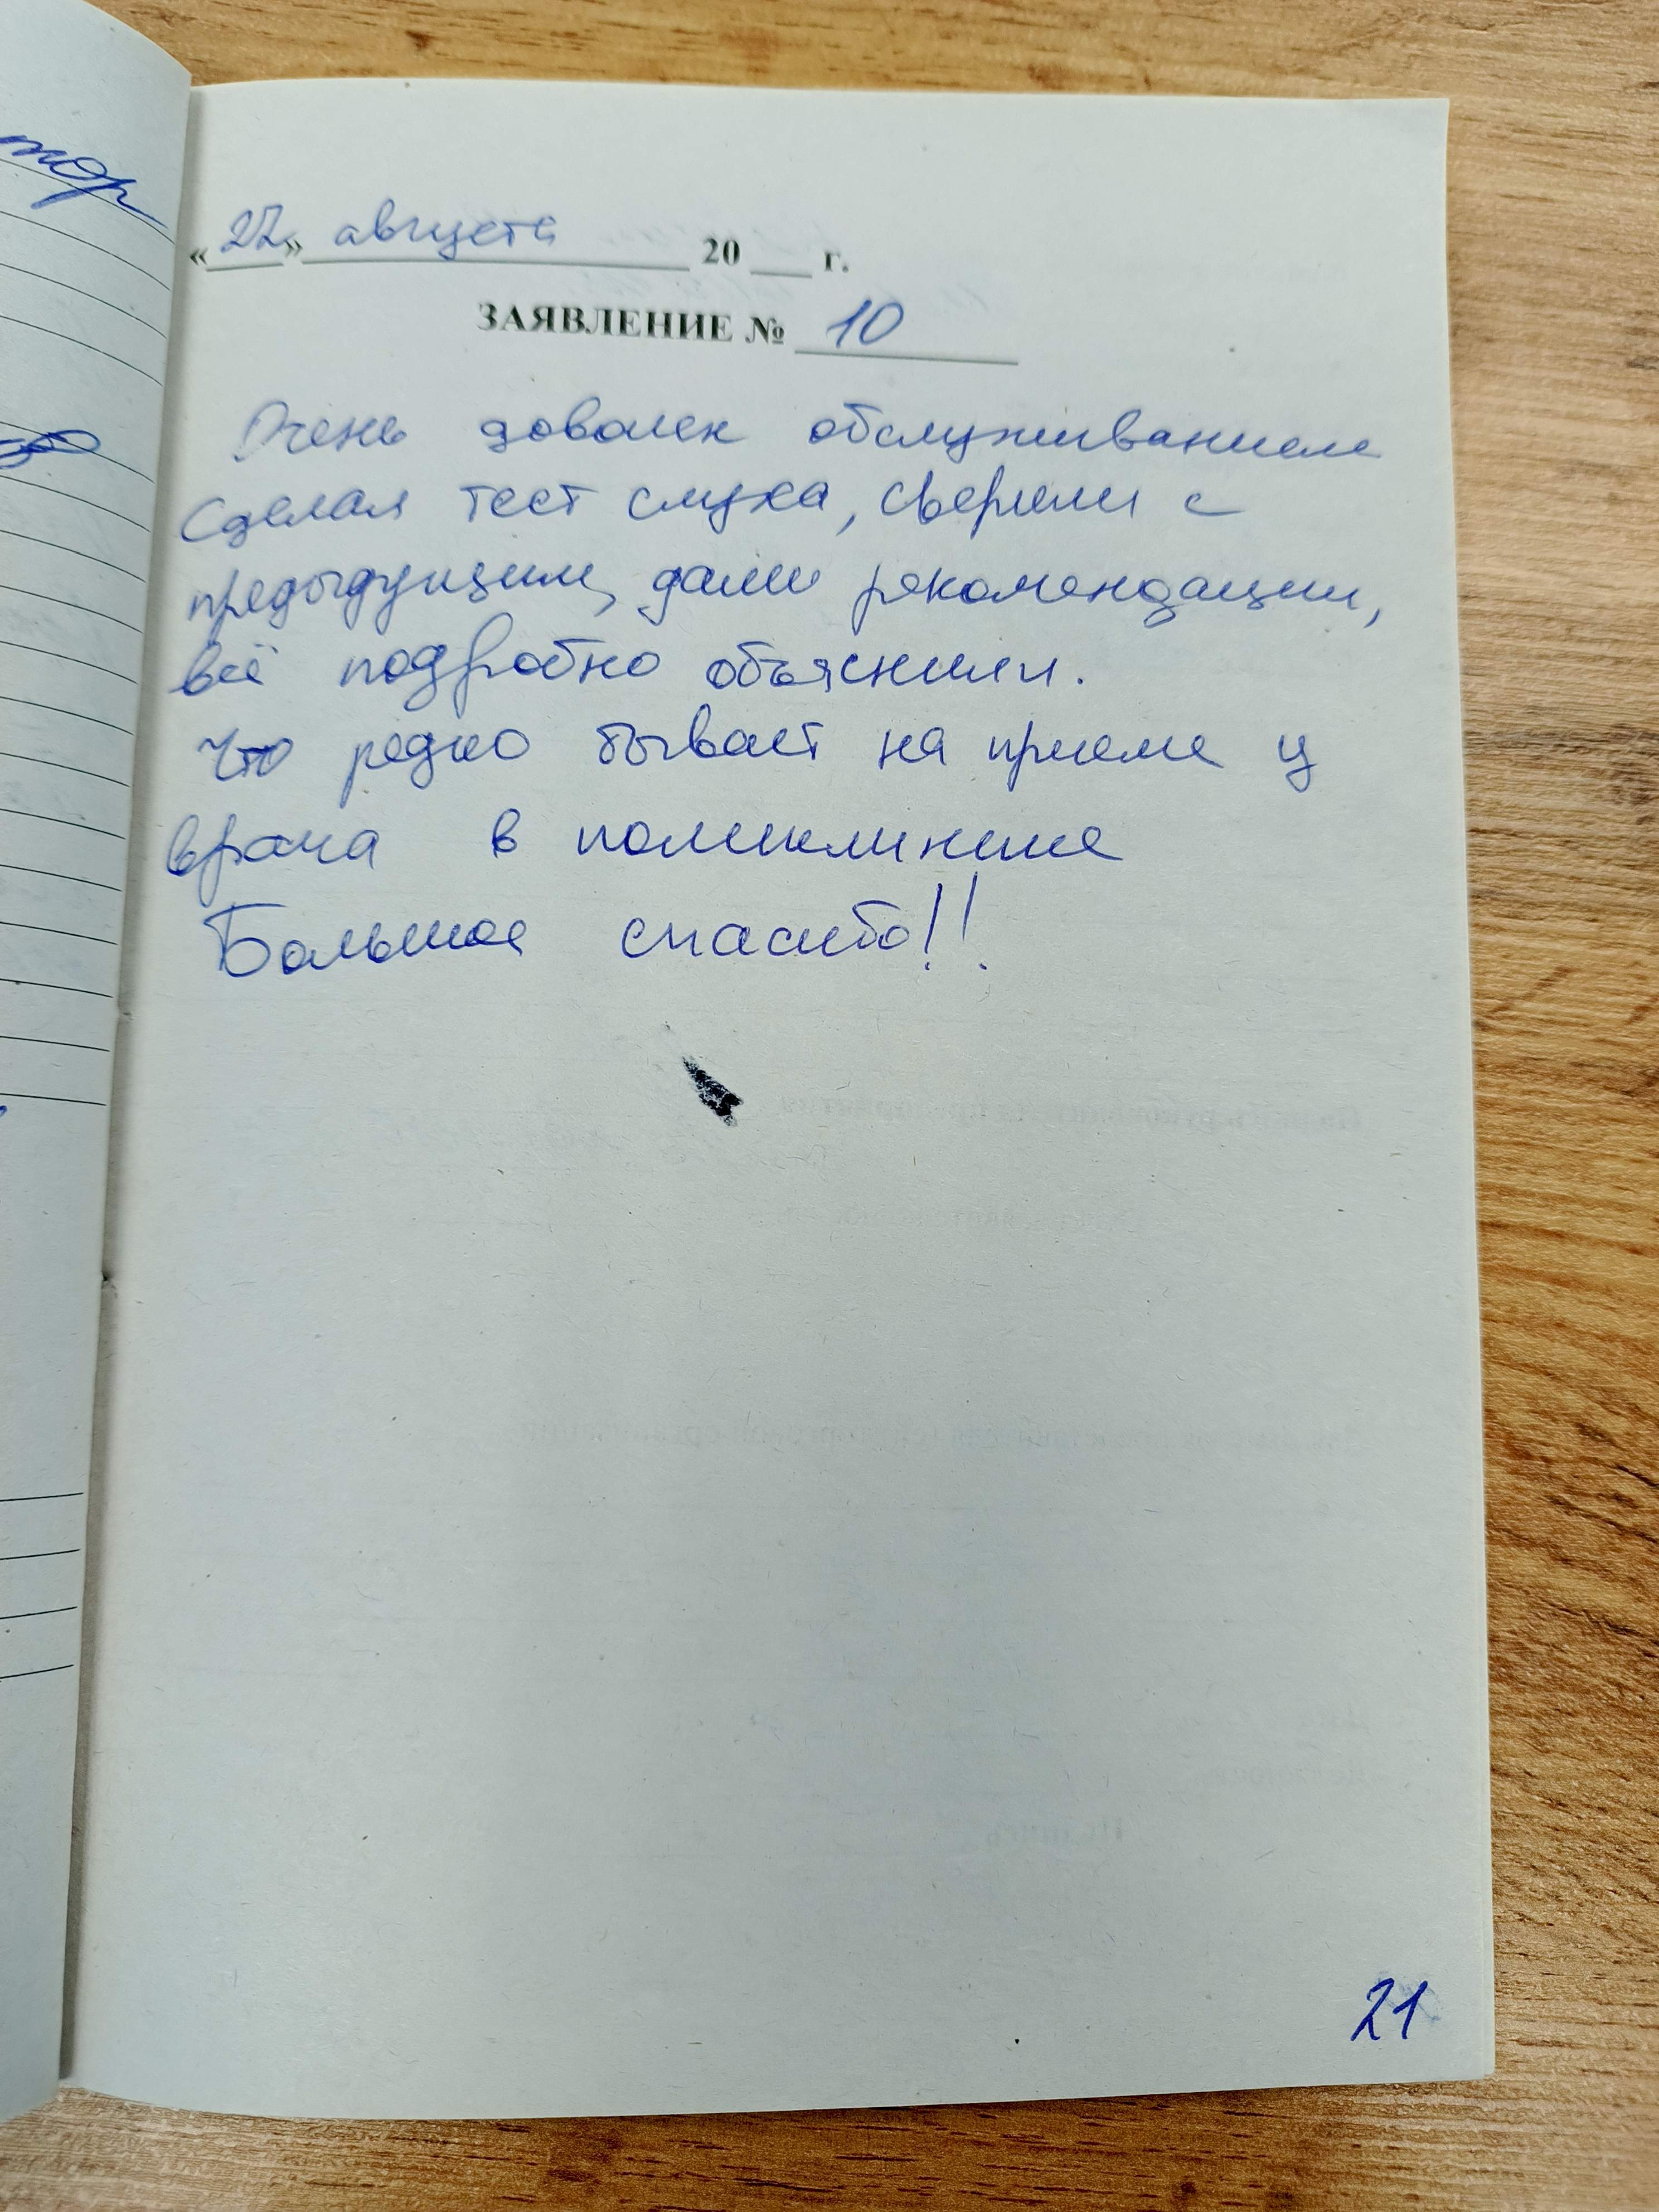 тор
«22» августа 20 ___ г.
ЗАЯВЛЕНИЕ № 10
Очень доволен обслуживанием
Сделал тест слуха, сверили с
предыдущим, дали рекомендации,
всё подробно объяснили.
Что редко бывает на приеме у
врача в поликлинике
Большое спасибо!!
21